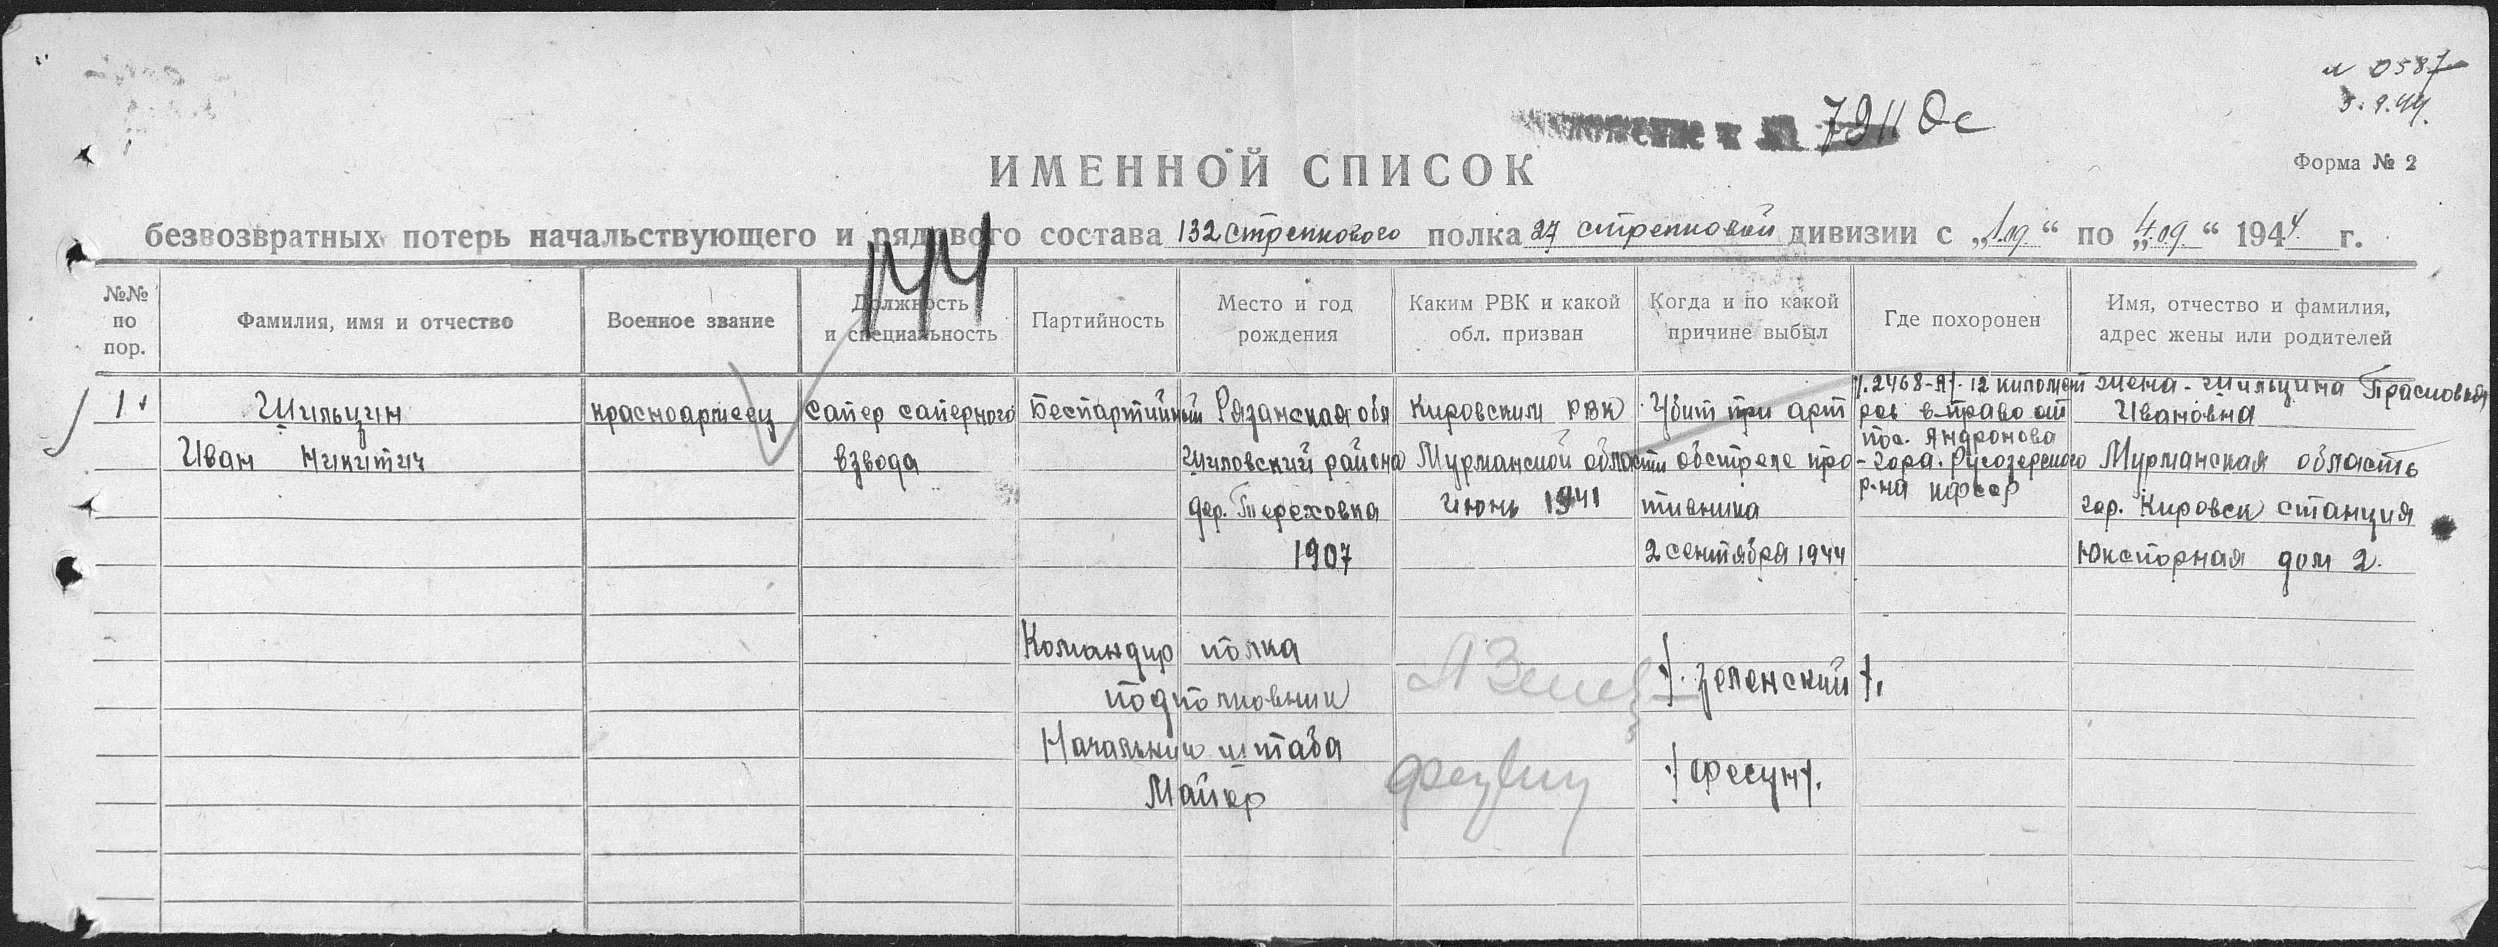 № 0587
3.9.44.
7911 Ос
ИМЕННОЙ СПИСОК
Форма № 2
безвозвратных потерь начальствующего и рядового состава 132 стрелкового полка 27 стрелковой дивизии с „1.09“ по „4.09.“ 1944 г.
144
№№ по пор.
Фамилия, имя и отчество
Военное звание
Должность и специальность
Партийность
Место и год рождения
Каким РВК и какой обл. призван
Когда и по какой причине выбыл
Где похоронен
Имя, отчество и фамилия, адрес жены или родителей
1
Шильцин
Иван Никитич
красноармеец
сапер саперного
взвода
Беспартийный
Рязанская обл
Шиловский района
дер. Тереховка
1907
Кировским РВК
Мурманской области
Июнь 1941
Убит при арт
обстреле про-
тивника
2 сентября 1944
12 километ
ров вправо от
пос. Андронова
гора. Ругозерского
р-на КФССР
жена - Шильцина Прасковья
Ивановна
Мурманская область
гор. Кировск станция
Юкспорная дом 2.
Командир полка
подполковник
/. Зеленский /.
Начальник штаба
Майор
/ Фесун /.